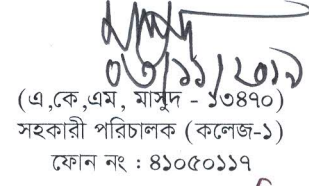 ০৩/১১/২০১৯
(এ,কে,এম, মাসুদ - ১৩৪৭০)
সহকারী পরিচালক (কলেজ-১)
ফোন নং : ৪১০৫০১১৭